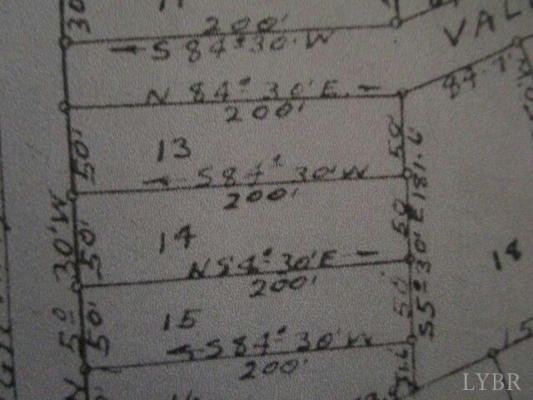 200'
S 84° 30' W
VAL
N 84° 30' E
200'
87.7'
50'
13
50'
S 84° 30' W
200'
30' W
50'
50'
14
N 84° 30' E
200'
18
S 5° 30' E 181.6'
5°
50'
50'
15
S 84° 30' W
200'
N
LYBR